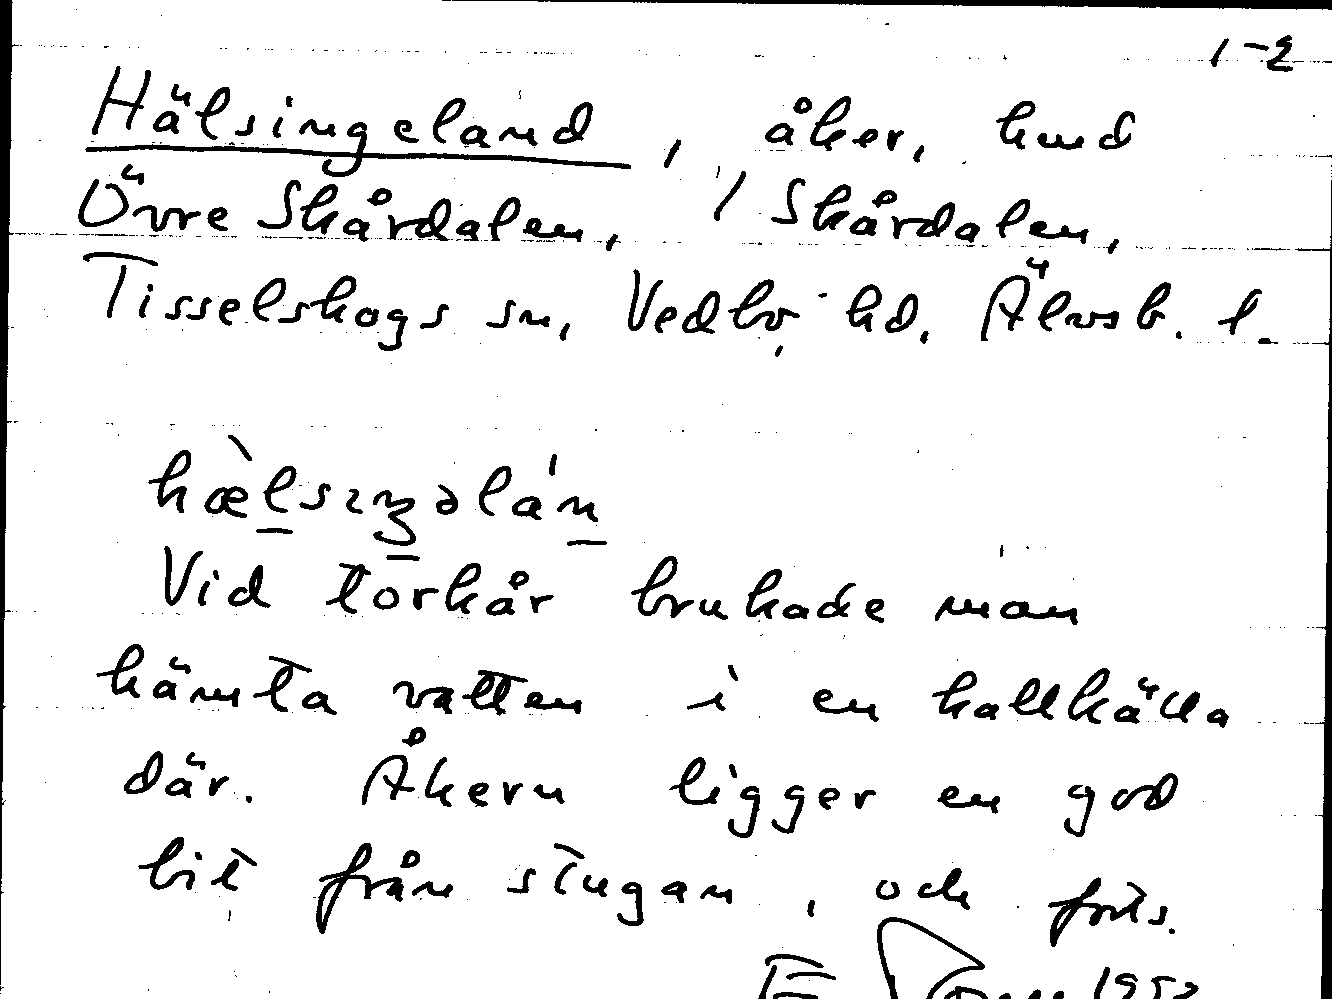 1-2
Hälsingeland, åker, hmd
Övre Skårdalen, / Skårdalen,
Tisselskogs sn, Vedbo hd, Älvsb. l.
Vid torkår brukade man
hämta vatten i en kallkälla
där. Åkern ligger en god
bit från stugan, och forts.